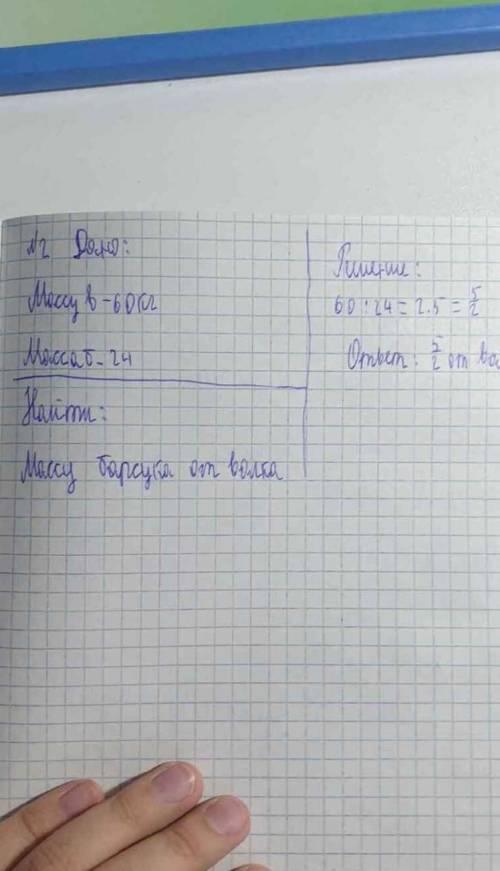 №2 Дано:
Массу в - 60 кг
Масса б - 24
Найти:
Массу барсука от волка
Решение:
60 : 24 = 2.5 = 5/2
Ответ: 5/2 от